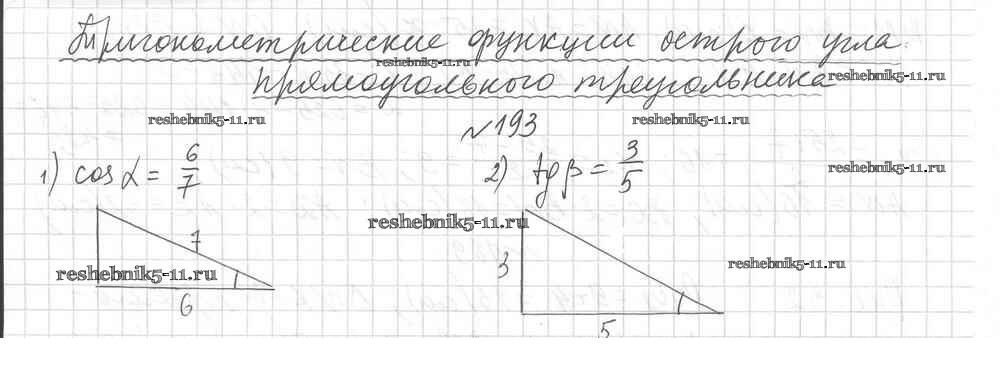 Тригонометрические функции острого угла
reshebnik5-11.ru
прямоугольного треугольника
reshebnik5-11.ru
reshebnik5-11.ru
№193
reshebnik5-11.ru
1) cos α = 6/7
2) tg β = 3/5
reshebnik5-11.ru
reshebnik5-11.ru
7
3
reshebnik5-11.ru
reshebnik5-11.ru
6
5